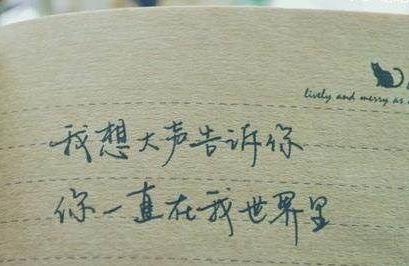 lively and merry as
我想大声告诉你
你一直在我世界里